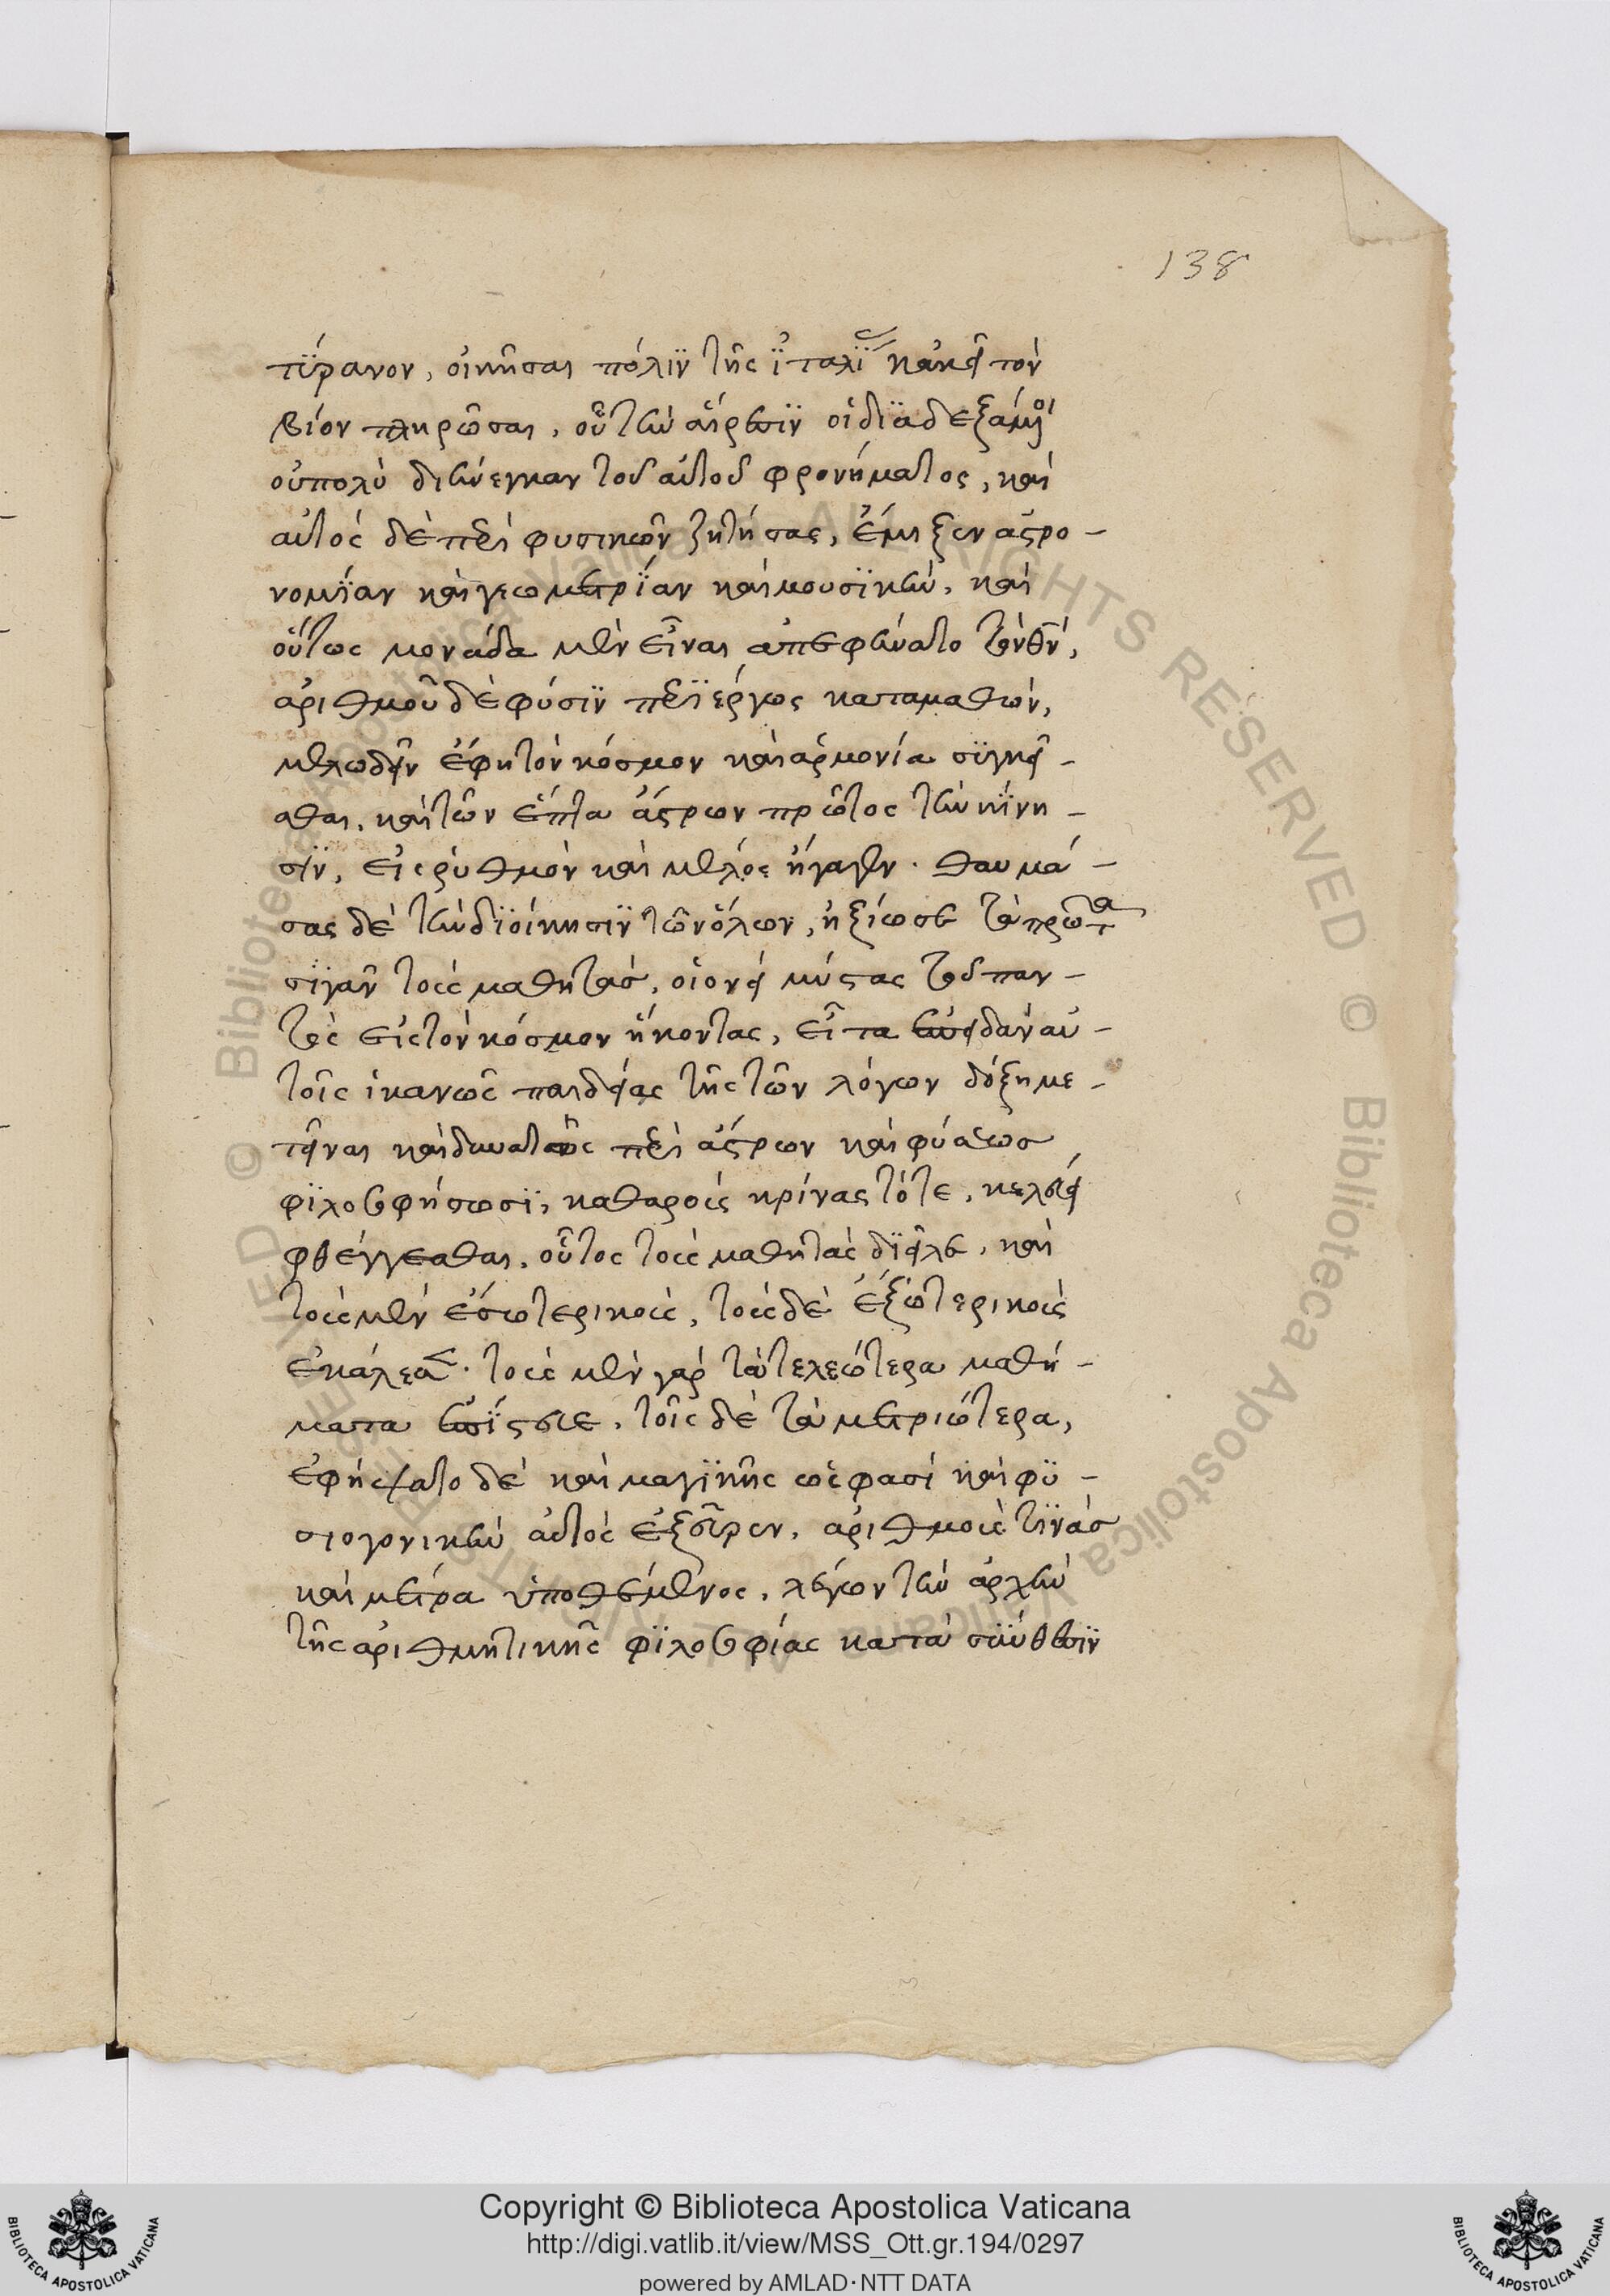 138
τύρανον, οἰκῆσαι πόλιν τῆς ἰταλίας κἀκεῖ τὸν
βίον πληρῶσαι, οὗ τὴν αἵρεσιν οἱ διαδεξάμενοι
οὐ πολὺ διήνεγκαν τοῦ αὐτοῦ φρονήματος, καὶ
αὐτὸς δὲ περὶ φυσικῶν ζητήσας, ἔμιξεν ἀστρο-
νομίαν καὶ γεωμετρίαν καὶ μουσικὴν, καὶ
οὕτως μονάδα μὲν εἶναι ἀπεφήνατο τὸν θν,
ἀριθμοῦ δὲ φύσιν περιέργως καταμαθὼν,
μελωδεῖν ἔφη τὸν κόσμον καὶ ἁρμονία συγκεῖ-
σθαι, καὶ τῶν ἑπτὰ ἄστρων πρῶτος τὴν κίνη-
σιν, εἰς ῥυθμὸν καὶ μέλος ἤγαγεν. θαυμά-
σας δὲ τὴν διοίκησιν τῶν ὅλων, ἠξίωσε τὰ πρῶτα
σιγᾶν τοὺς μαθητὰσ, οἱονεὶ μύστας τοῦ παν-
τὸς εἰς τὸν κόσμον ἥκοντας, εἶτα ἐπειδὰν αὐ-
τοῖς ἱκανῶς παιδείας τῆς τῶν λόγων δόξη με-
τεῖναι καὶ δυνατῶς περὶ ἄστρων καὶ φύσεωσ
φιλοσοφήσωσι, καθαροὺς κρίνας τότε, κελεύει
φθέγγεσθαι, οὗτος τοὺς μαθητὰς διεῖλε, καὶ
τοὺς μὲν ἐσωτερικοὺς, τοὺς δὲ ἐξωτερικοὺς
ἐκάλεσεν. τοὺς μὲν γὰρ τὰ τελεώτερα μαθή-
ματα ἐπίστευε, τοῖς δὲ τὰ μετριώτερα,
ἐφήψατο δὲ καὶ μαγικῆς ὡς φασὶ καὶ φυ-
σιογονικὴν αὐτὸς ἐξεῦρεν, ἀριθμοὺς τινὰσ
καὶ μέτρα ὑποθέμενος, λέγων τὴν ἀρχὴν
τῆς ἀριθμητικῆς φιλοσοφίας κατὰ σύνθεσιν
Copyright © Biblioteca Apostolica Vaticana
http://digi.vatlib.it/view/MSS_Ott.gr.194/0297
powered by AMLAD·NTT DATA
BIBLIOTECA APOSTOLICA VATICANA
BIBLIOTECA APOSTOLICA VATICANA